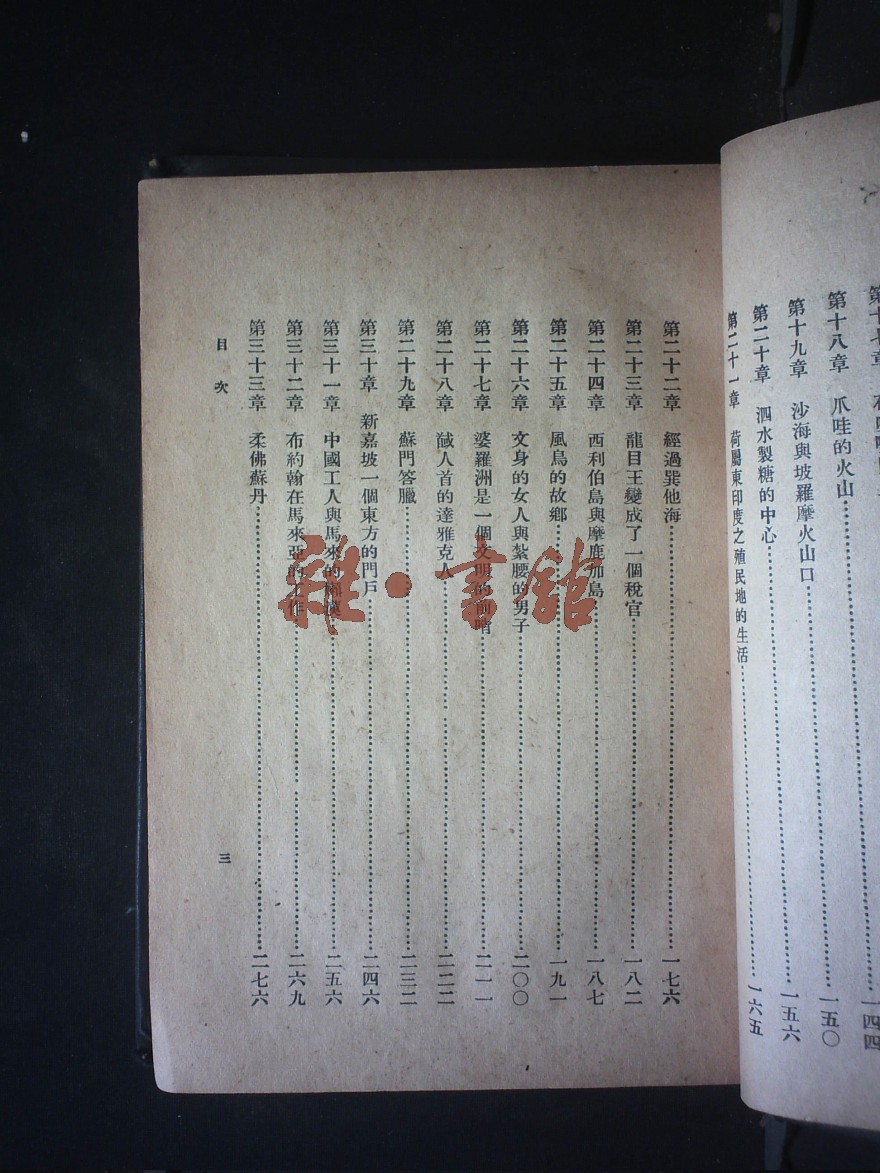 第十八章 爪哇的火山 一五〇
第十九章 沙海與坡羅摩火山口 一五六
第二十章 泗水製糖的中心 一五六
第二十一章 荷屬東印度之殖民地的生活 一六五
第二十二章 經過巽他海 一七六
第二十三章 龍目王變成了一個稅官 一八二
第二十四章 西利伯島與摩鹿加島 一八七
第二十五章 風鳥的故鄉 一九一
第二十六章 文身的女人與紮腰的男子 二〇〇
第二十七章 婆羅洲是一個文明的前哨 二一一
第二十八章 馘人首的達雅克人 二二二
第二十九章 蘇門答臘 二三二
第三十章 新嘉坡一個東方的門戶 二四六
第三十一章 中國工人與馬來的懶漢 二五六
第三十二章 布約翰在馬來亞的工作 二六九
第三十三章 柔佛蘇丹 二七六
目次
三
雜·書館